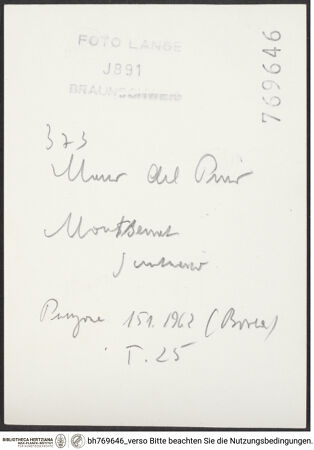 FOTO LANGE
J891
BRAUNSCHWEIG
769646
373
Muur del Prior
Montserrat
1962
T. 25
BIBLIOTHECA HERTZIANA
MAX-PLANCK-INSTITUT
FÜR KUNSTGESCHICHTE
bh769646_verso Bitte beachten Sie die Nutzungsbedingungen.